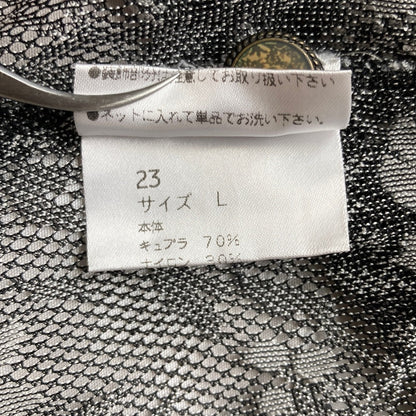 してお取り扱い下さい
●ネットに入れて単品でお洗い下さい。
23
サイズ L
本体
キュプラ 70%
ナイロン 30%